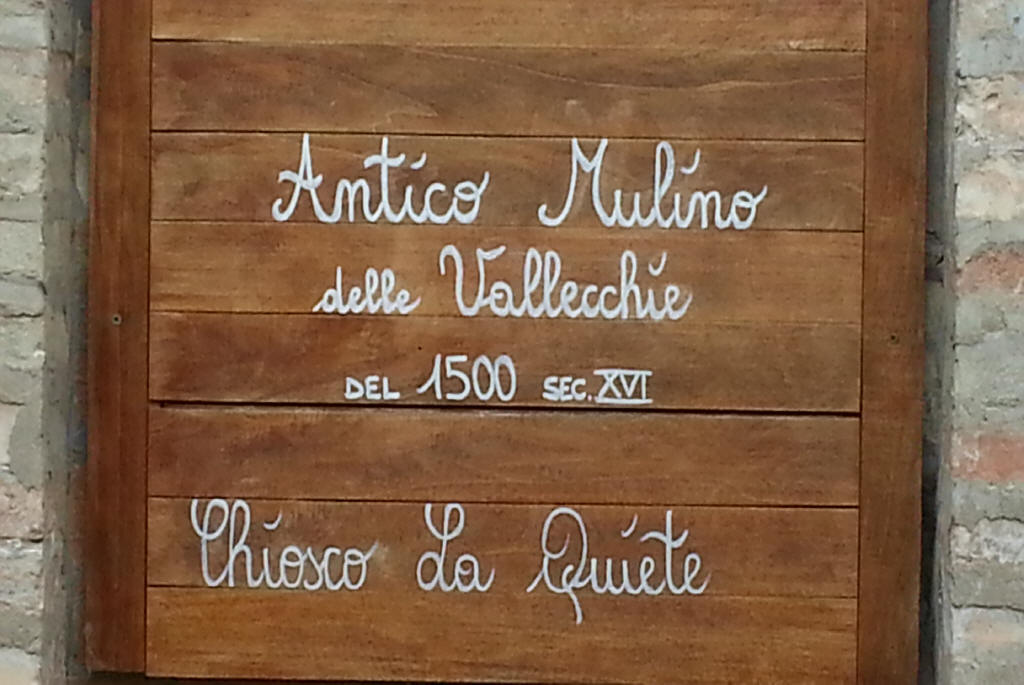 Antico Mulino
delle Vallecchie
DEL 1500 SEC. XVI
Chiosco La Quiete